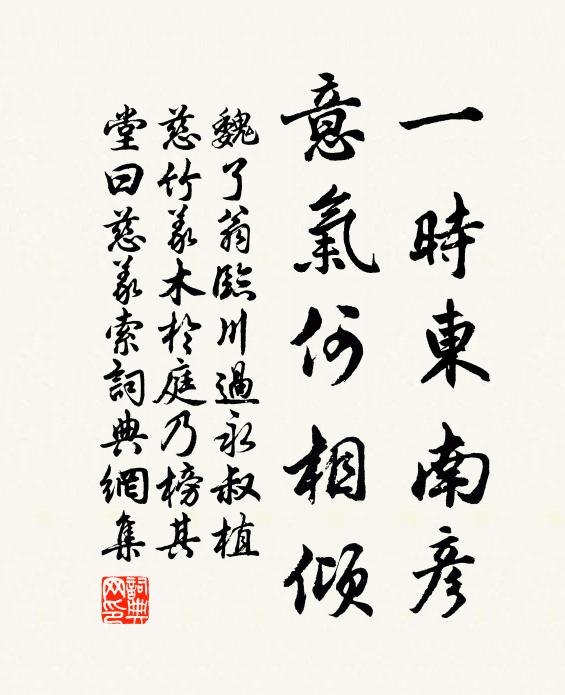 一時東南彥
意氣何相傾
魏了翁臨川過永叔植
慈竹義木於庭乃榜其
堂曰慈義索詞典網集
詞典網印